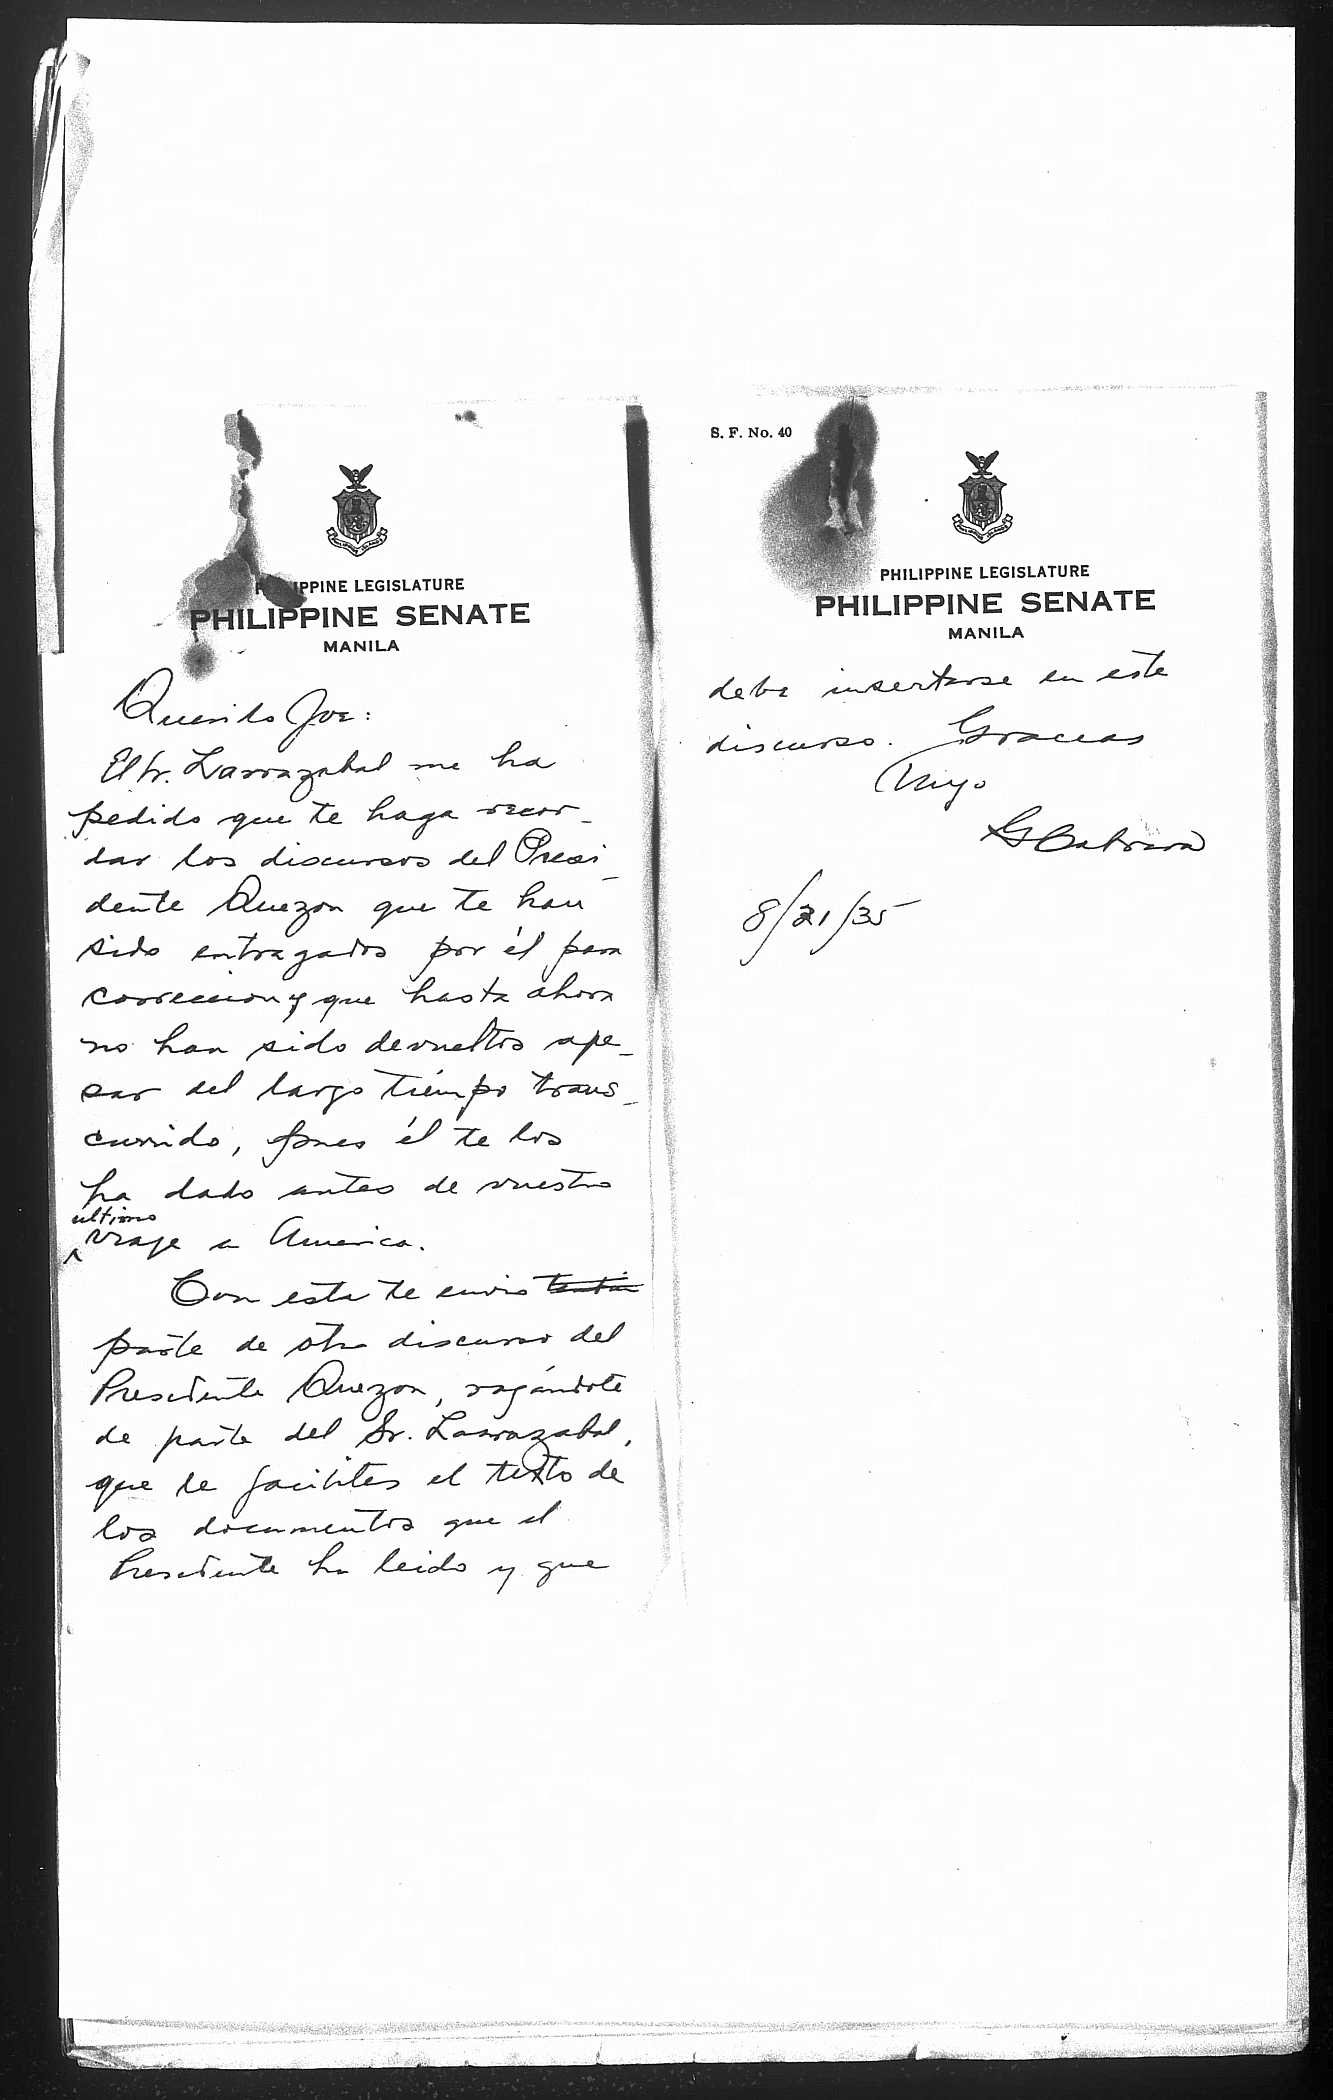 PHILIPPINE LEGISLATURE
PHILIPPINE SENATE
MANILA
Querido Joe:
El Sr. Larrazabal me ha
pedido que te haga recor-
dar los discursos del Presi-
dente Quezon que te han
sido entregados por él para
correccion y que hasta ahora
no han sido devueltos ape-
sar del largo tiempo trans-
currido, pues él te los
ha dado antes de vuestro
ultimo
viaje a America.
Con esta te envio
parte de otro discurso del
Presidente Quezon, rogándote
de parte del Sr. Larrazabal,
que le facilites el texto de
los documentos que el
Presidente ha leido y que
S. F. No. 40
PHILIPPINE LEGISLATURE
PHILIPPINE SENATE
MANILA
debe insertarse en este
discurso. Gracias
Tuyo
GCabrera
8/21/35